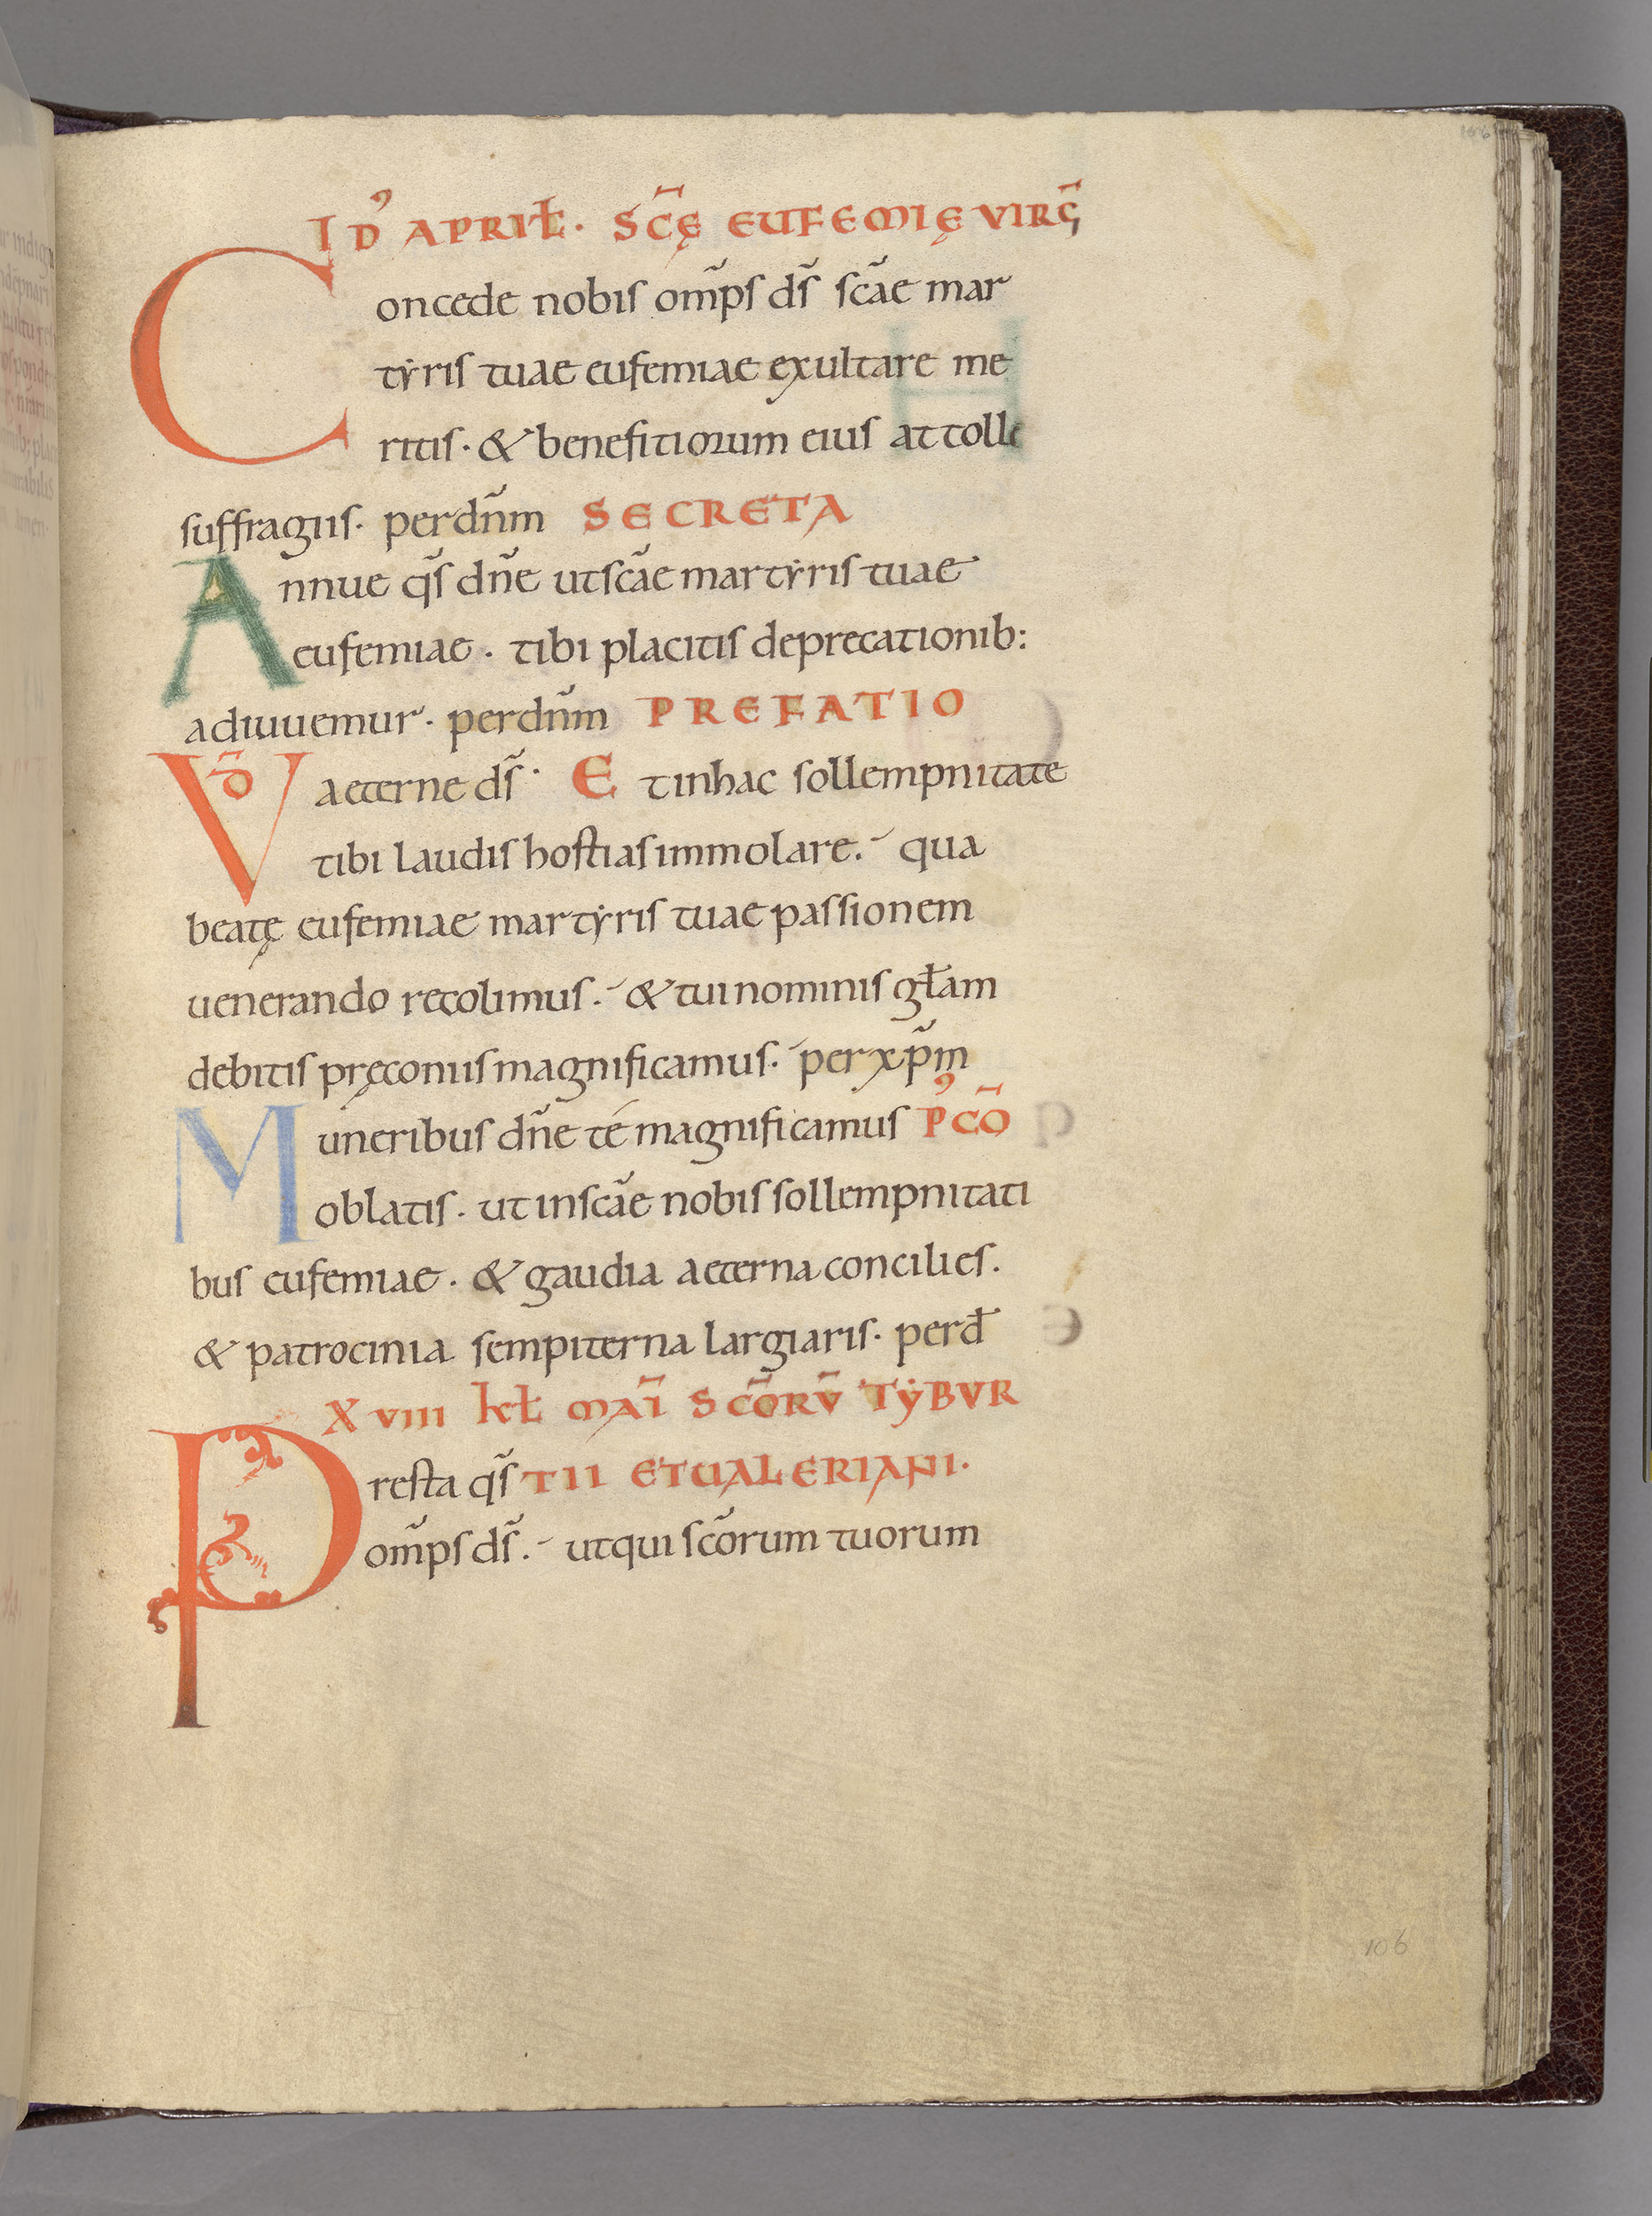 ID' APRIŁ. SC̄Ę EUFEMIĘ VIRG̃
Concede nobis om̃ps ds̃ scãe mar
tẏris tuae eufemiae exultare me
ritis. & benefitiorum eius attolle
suffragiis. per dñm SECRETA
Annue qs̃ dñe ut scãe martẏris tuae
eufemiae. tibi placitis deprecationib:
adiuuemur. per dñm PREFATIO
VD̃ aeterne ds̃. Et in hac sollempnitate
tibi laudis hostias immolare. qua
beatę eufemiae martẏris tuae passionem
uenerando recolimus. & tui nominis gƚam
debitis pręconiis magnificamus. per xp̃m
Muneribus dñe té magnificamus P'CŌ
oblatis. ut in scãe nobis sollempnitati
bus eufemiae. & gaudia aeterna concilies.
& patrocinia sempiterna largiaris. per đ
XVIII kƚ MAĪ SC̄ORṼ TẎBVR
Presta qs̃ TII ET UALERIANI.
om̃ps ds̃. ut qui scõrum tuorum
106